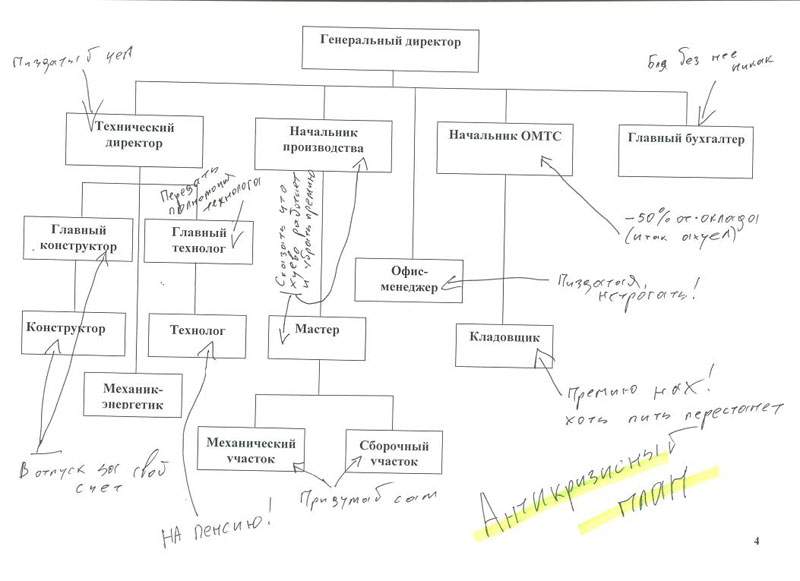 Генеральный директор
Пиздатый чел
Бля без нее
никак
Технический
директор
Начальник
производства
Начальник ОМТС
Главный бухгалтер
Передать
полномочия
технолога
Сказать что
хуево работает
и убрать премию
Главный
конструктор
Главный
технолог
-50% от оклада
(итак охуел)
Офис-
менеджер
Пиздатая,
не трогать!
Конструктор
Технолог
Мастер
Кладовщик
Механик-
энергетик
Премию нах!
хоть пить перестанет
Механический
участок
Сборочный
участок
В отпуск за свой
счет
Придумай сам
НА ПЕНСИЮ!
Антикризисный
план
4